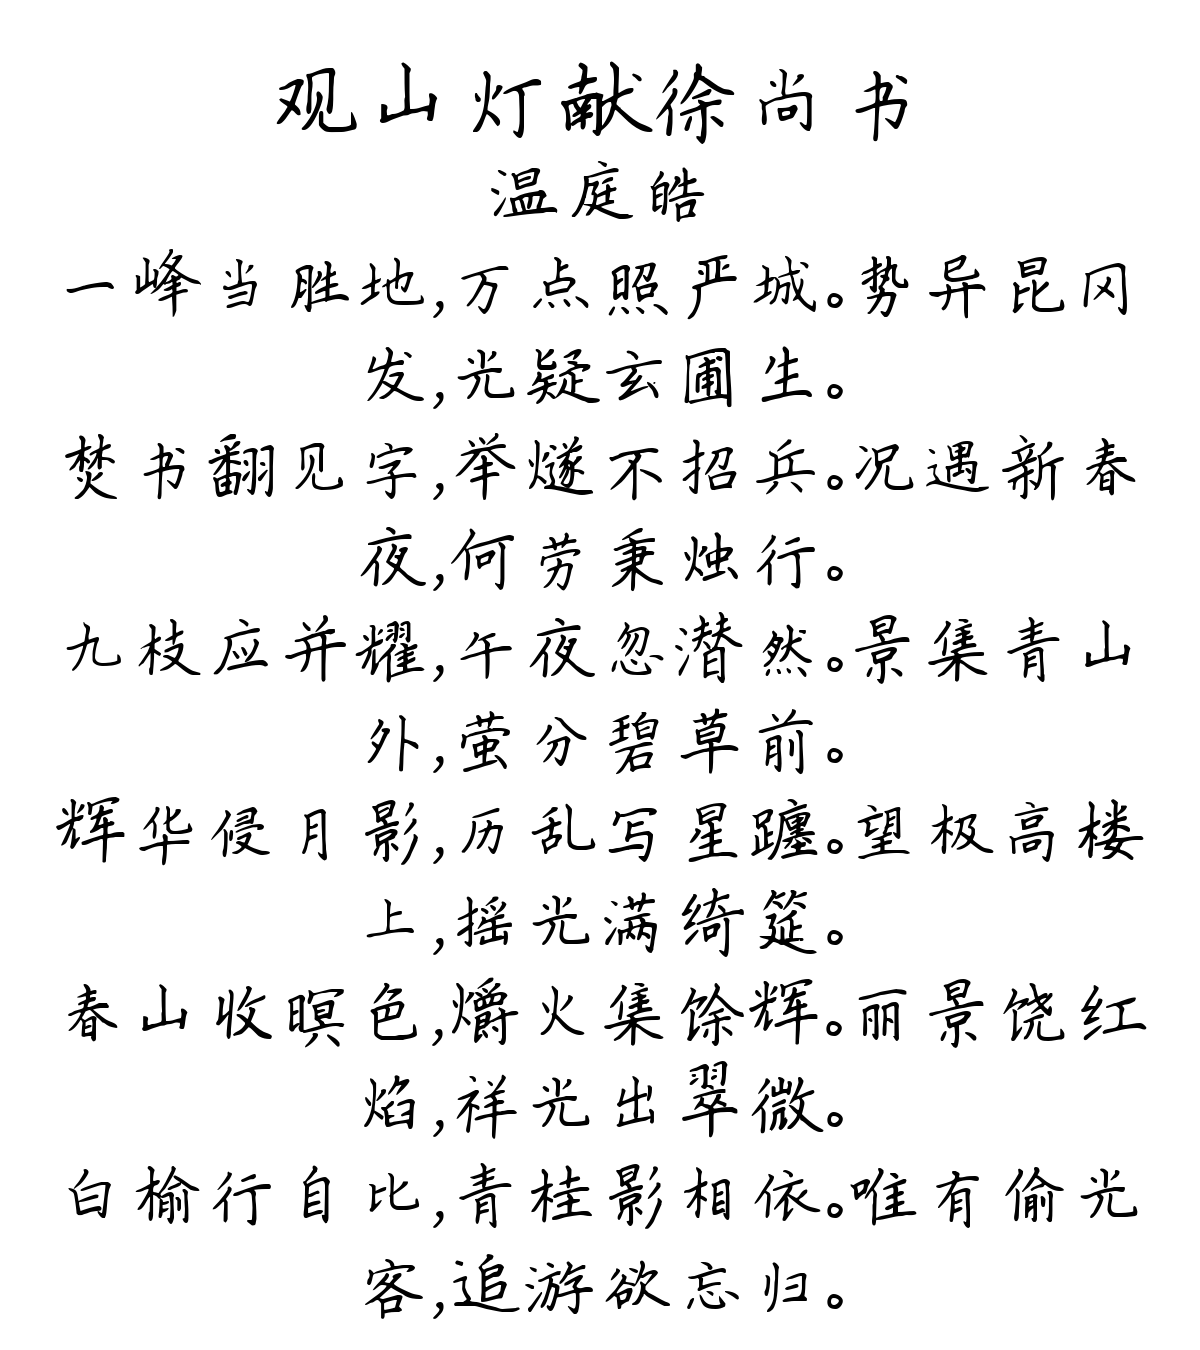 观山灯献徐尚书
温庭皓
一峰当胜地,万点照严城。势异昆冈
发,光疑玄圃生。
焚书翻见字,举燧不招兵。况遇新春
夜,何劳秉烛行。
九枝应并耀,午夜忽潜然。景集青山
外,萤分碧草前。
辉华侵月影,历乱写星躔。望极高楼
上,摇光满绮筵。
春山收暝色,爝火集馀辉。丽景饶红
焰,祥光出翠微。
白榆行自比,青桂影相依。唯有偷光
客,追游欲忘归。